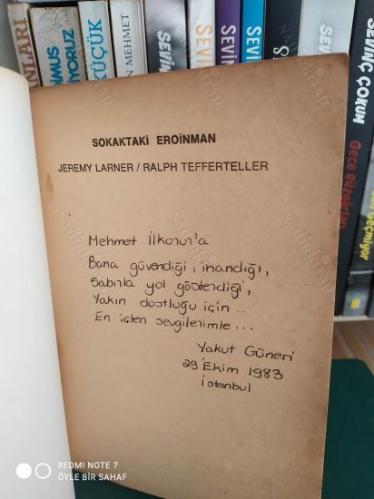 ANLARI
KÜÇÜK
N MEHMET
SEVİN
SEVİNÇ ÇOKUM
Gece Rüzgârları
SOKAKTAKİ EROİNMAN
JEREMY LARNER / RALPH TEFFERTELLER
Mehmet İlkorur'a
Bana güvendiği, inandığı,
Sabırla yol gösterdiği,
Yakın dostluğu için..
En içten sevgilerimle...
Yakut Güneri
29 Ekim 1983
İstanbul
REDMI NOTE 7
ÖYLE BİR SAHAF